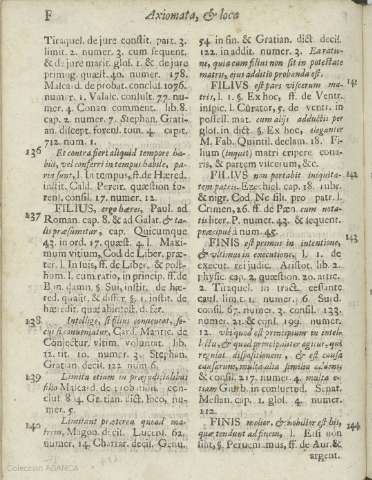 F Axiomata, & loca
Tiraquel. de jure constit. part. 3.
limit. 2. numer. 3. cum sequent.
& de jure marit. glos. 1. & de juro
primog. quæst. 40. numer. 178.
Mascard. de probat. conclus. 1076.
num. 7. 1. Valasc. consult. 77. nu-
mer. 4. Conan comment. lib. 8.
cap. 2. numer. 7. Stephan. Grati-
an. discept. forens. tom. 4. capit.
712. num. 1.
136 Et contra fieri aliquid tempore ha-
bili, vel conferri in tempus habile, pa-
ria sunt, l. In tempus, ff. de Hæred.
instit. Cald. Pereir. quæstion fo-
rens. consil. 17. numer. 12.
237 FILIUS, ergo hæres, Paul. ad
Roman. cap. 8. & ad Galat. & ta-
lis præsumitur, cap. Quicumque
43. in ord. 17. quæst. 4. l. Maxi-
mum vitium, Cod de Liber. præ-
ter. l. In suis, ff. de Liber. & post-
hum. l. cum ratio, in princip. ff. de
Bon. damn. § Sui, instit. de hæ-
red. qualit. & differ. § 1. instit. de
hæredit. quæ ab intest. d. fer.
138 Intellige, si filius concurrat, se-
cus si cum matre, Card. Mantic. de
Conjectur. ultim. voluntat. lib.
12. tit. 10. numer. 3. Stephan.
Gratian. decis. 122 num 6.
139 Limita etiam in præjudicialibus
filio Mascard. de probation con-
clus 8 4. Gratian. dict. loco, nu-
mer. 5.
140 Limitant præterea quoad ma-
trem, Magon. decis. Lucens. 62.
numer. 14 Chartar. decis. Genu.
54. in fin. & Gratian. dict. decis.
122. in addit. numer. 3. Ea ratio-
ne, quia cum filius non sit in potestate
matris, ejus additio probanda est.
FILIUS est pars viscerum ma- 141
tris, l. 1. §. Ex hoc, ff. de Ventr.
inspic. l. Curator, 5. de ventr. in
possess. mat. cum aliis adductis per
glos. in dict. §. Ex hoc, eleganter
M. Fab. Quintil. declam. 18. Fi-
lium (inquit) matri eripere cona-
ris, & patrem viscerum, &c.
FILIUS non portabit iniquita- 142
tem patris. Ezechiel. cap. 18. rubr.
& nigr. Cod. Ne fil. pro patr. l.
Crimen, 16. ff. de Pæn. cum nota-
tis liter. P. numer. 43. & sequent.
præcipuè à num. 45.
FINIS est primus in intentione, 143
& ultimus in executione, l. 1. de
execut. rei judic. Aristot. lib. 2.
physic. cap. 2. quæstion. 20. artic.
2. Tiraquel. in tract. cessante
caus. limit. 1. numer. 6. Surd.
consil. 67. numer. 3. consil. 133.
numer. 21. & cons. 199. numer.
12. ubi quod est principium in intel-
lectu, & quod principaliter agitur, quia
regulat dispositionem, & est causa
causarum, multa alia similia eidem
& consil. 217. numer. 4. multa e-
tiam Giurb. in consuetud. Senat.
Messan. cap. 1. glos. 4. numer.
112.
FINIS melior, & nobilior est his, 144
quæ tendunt ad finem, l. Etsi non
sint, §. Perveniamus, ff. de Aur. &
argent.
Coleccion ABANCA